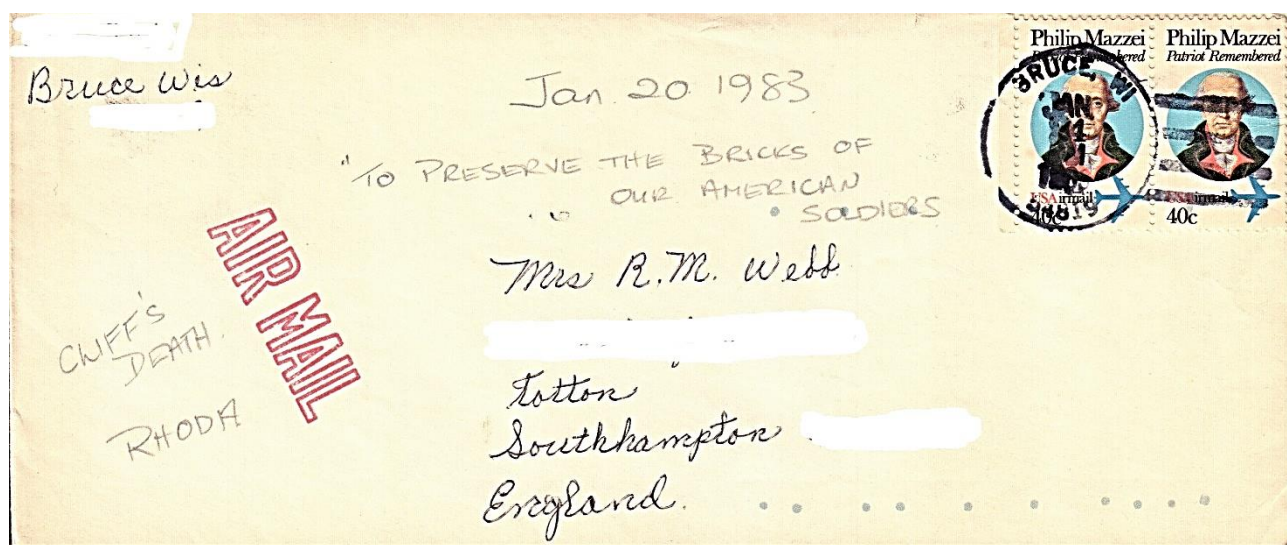 Bruce Wis
Jan. 20 1983
"TO PRESERVE THE BRICKS OF
OUR AMERICAN
SOLDIERS
AIR MAIL
CLIFF'S
DEATH.
RHODA
Mrs R.M. Webb
Totton
Southhampton
England.
Philip Mazzei
Patriot Remembered
USAirmail
40c
Philip Mazzei
Patriot Remembered
USAirmail
40c
BRUCE, WI
JAN
54819